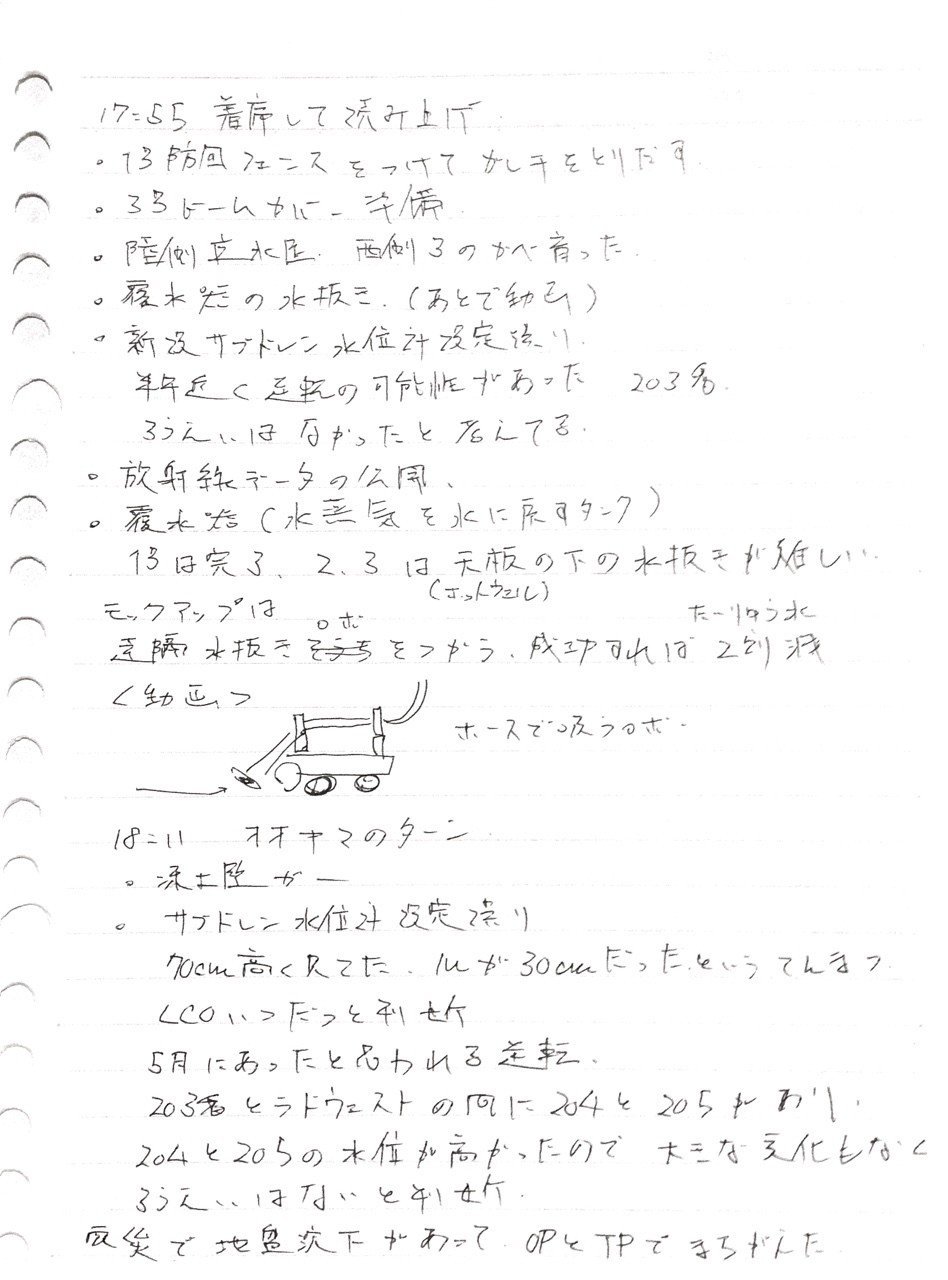 17:55 着席して読み上げ
・1号防風フェンスをつけてガレキをとりだす.
・3号ドームカバー準備
・陸側遮水壁. 西側3のかべ育った.
・復水器の水抜き.(あとで動画)
・新設サブドレン水位計設定誤り.
半年近く逆転の可能性があった 203番.
ろうえいはなかったと考えてる.
・放射線データの公開、
・復水器(水蒸気を水に戻すタンク)
1号は完了、2、3は天板の下の水抜きが難しい.
(ホットウェル)
モックアップは
ロボ たいりゅう水
遠隔水抜きそうちをつかう、成功すれば2割減
<動画>
ホースで吸うロボ.
18:11 オオヤマのターン
・凍土壁がー
・サブドレン水位計設定誤り
70cm高く見てた、1mが30cmだったというてんまつ
LCOいつだつと判断
5月にあったと思われる逆転.
203番とラドウェストの間に204と205があり、
204と205の水位が高かったので大きな変化もなく
ろうえいはないと判断.
震災で地盤沈下があって OPとTPでまちがえた